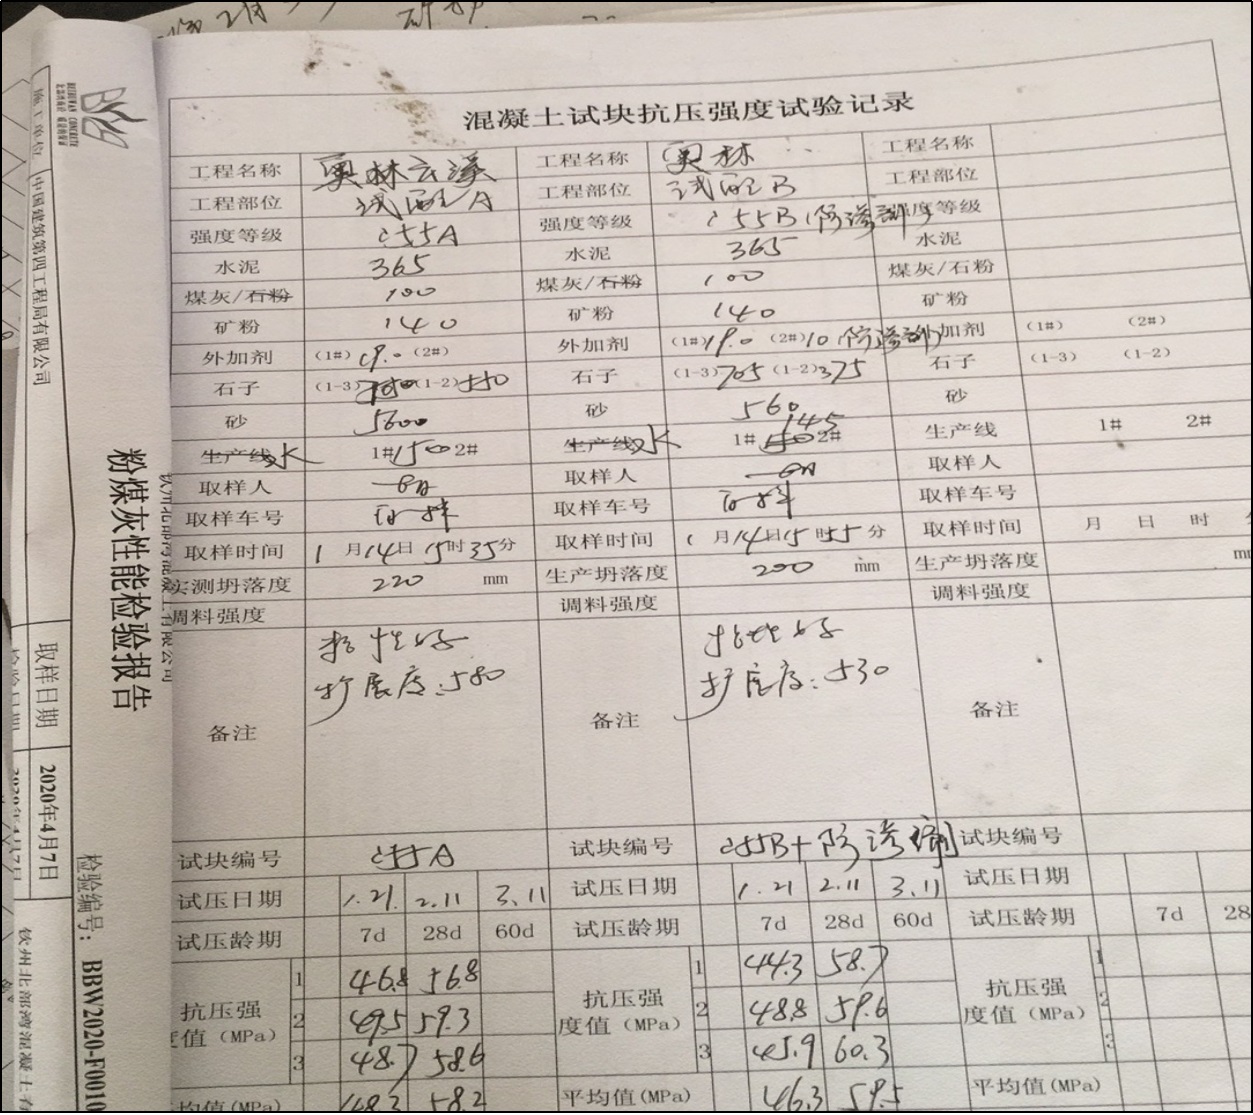 混凝土试块抗压强度试验记录
工程名称 奥林云溪 工程名称 奥林 工程名称
工程部位 试配A 工程部位 试配B 工程部位
强度等级 C55A 强度等级 C55B(防渗剂) 强度等级
水泥 365 水泥 365 水泥
煤灰/石粉 100 煤灰/石粉 100 煤灰/石粉
矿粉 140 矿粉 140 矿粉
外加剂 (1#) 19.0 (2#) 外加剂 (1#) 19.0 (2#) 10(防渗剂) 外加剂 (1#) (2#)
石子 (1-3) (1-2) 550 石子 (1-3) 705 (1-2) 375 石子 (1-3) (1-2)
砂 5600 砂 560 砂
生产线 水 1# 1500 2# 生产线 水 1# 145 2# 生产线 1# 2#
取样人 取样人 取样人
取样车号 取样车号 取样车号
取样时间 1 月 14 日 15 时 35 分 取样时间 1 月 14 日 15 时 55 分 取样时间 月 日 时
实测坍落度 220 mm 生产坍落度 200 mm 生产坍落度
调料强度 调料强度 调料强度
备注 性好 备注 性好 备注
扩展度:580 扩展度:530
试块编号 C55A 试块编号 C55B+防渗剂 试块编号
试压日期 1.21 2.11 3.11 试压日期 1.21 2.11 3.11 试压日期
试压龄期 7d 28d 60d 试压龄期 7d 28d 60d 试压龄期 7d 28
抗压强度值(MPa) 抗压强度值(MPa) 抗压强度值(MPa)
1 46.8 56.8 1 44.3 58.7 1
2 49.5 59.3 2 48.8 59.6 2
3 48.7 58.6 3 45.9 60.3 3
平均值(MPa) 48.3 58.2 平均值(MPa) 46.3 59.5 平均值(MPa)
粉煤灰性能检验报告
检验编号: BBW2020-F0010
施工单位 中国建筑第四工程局有限公司
取样日期 2020年4月7日
检验日期 2020年4月7日
钦州北部湾混凝土有